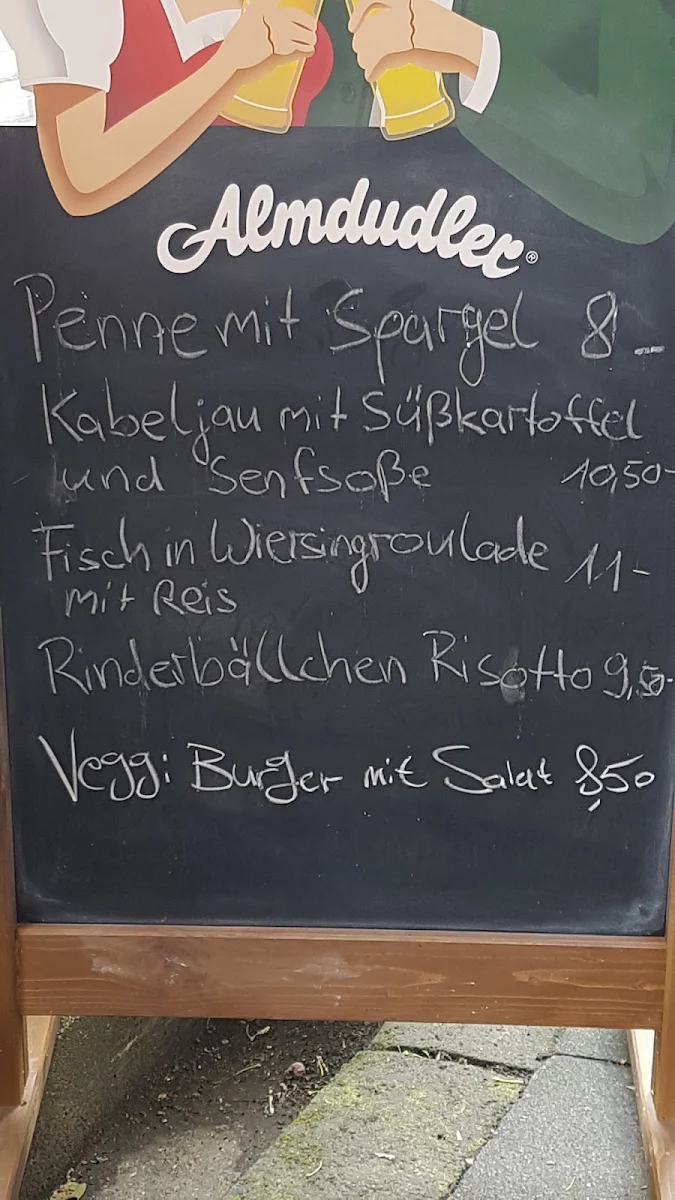 Almdudler®
Penne mit Spargel 8-
Kabeljau mit Süßkartoffel
und Senfsoße 10,50-
Fisch in Wiersingroulade 11-
mit Reis
Rinderbällchen Risotto 9,50-
Veggi Burger mit Salat 8,50